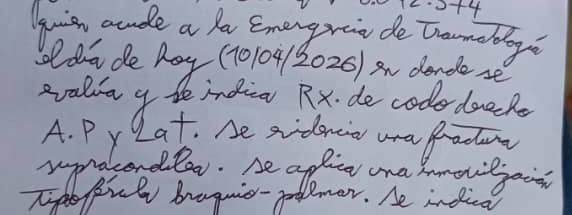 quien acude a la Emergencia de Traumatología
el día de hoy (10/04/2026) en donde se
evalúa y se indica RX. de codo derecho
A.P y Lat. Se evidencia una fractura
supracondilea. Se aplica una inmovilización
Tipo férula braquio-palmar. Se indica